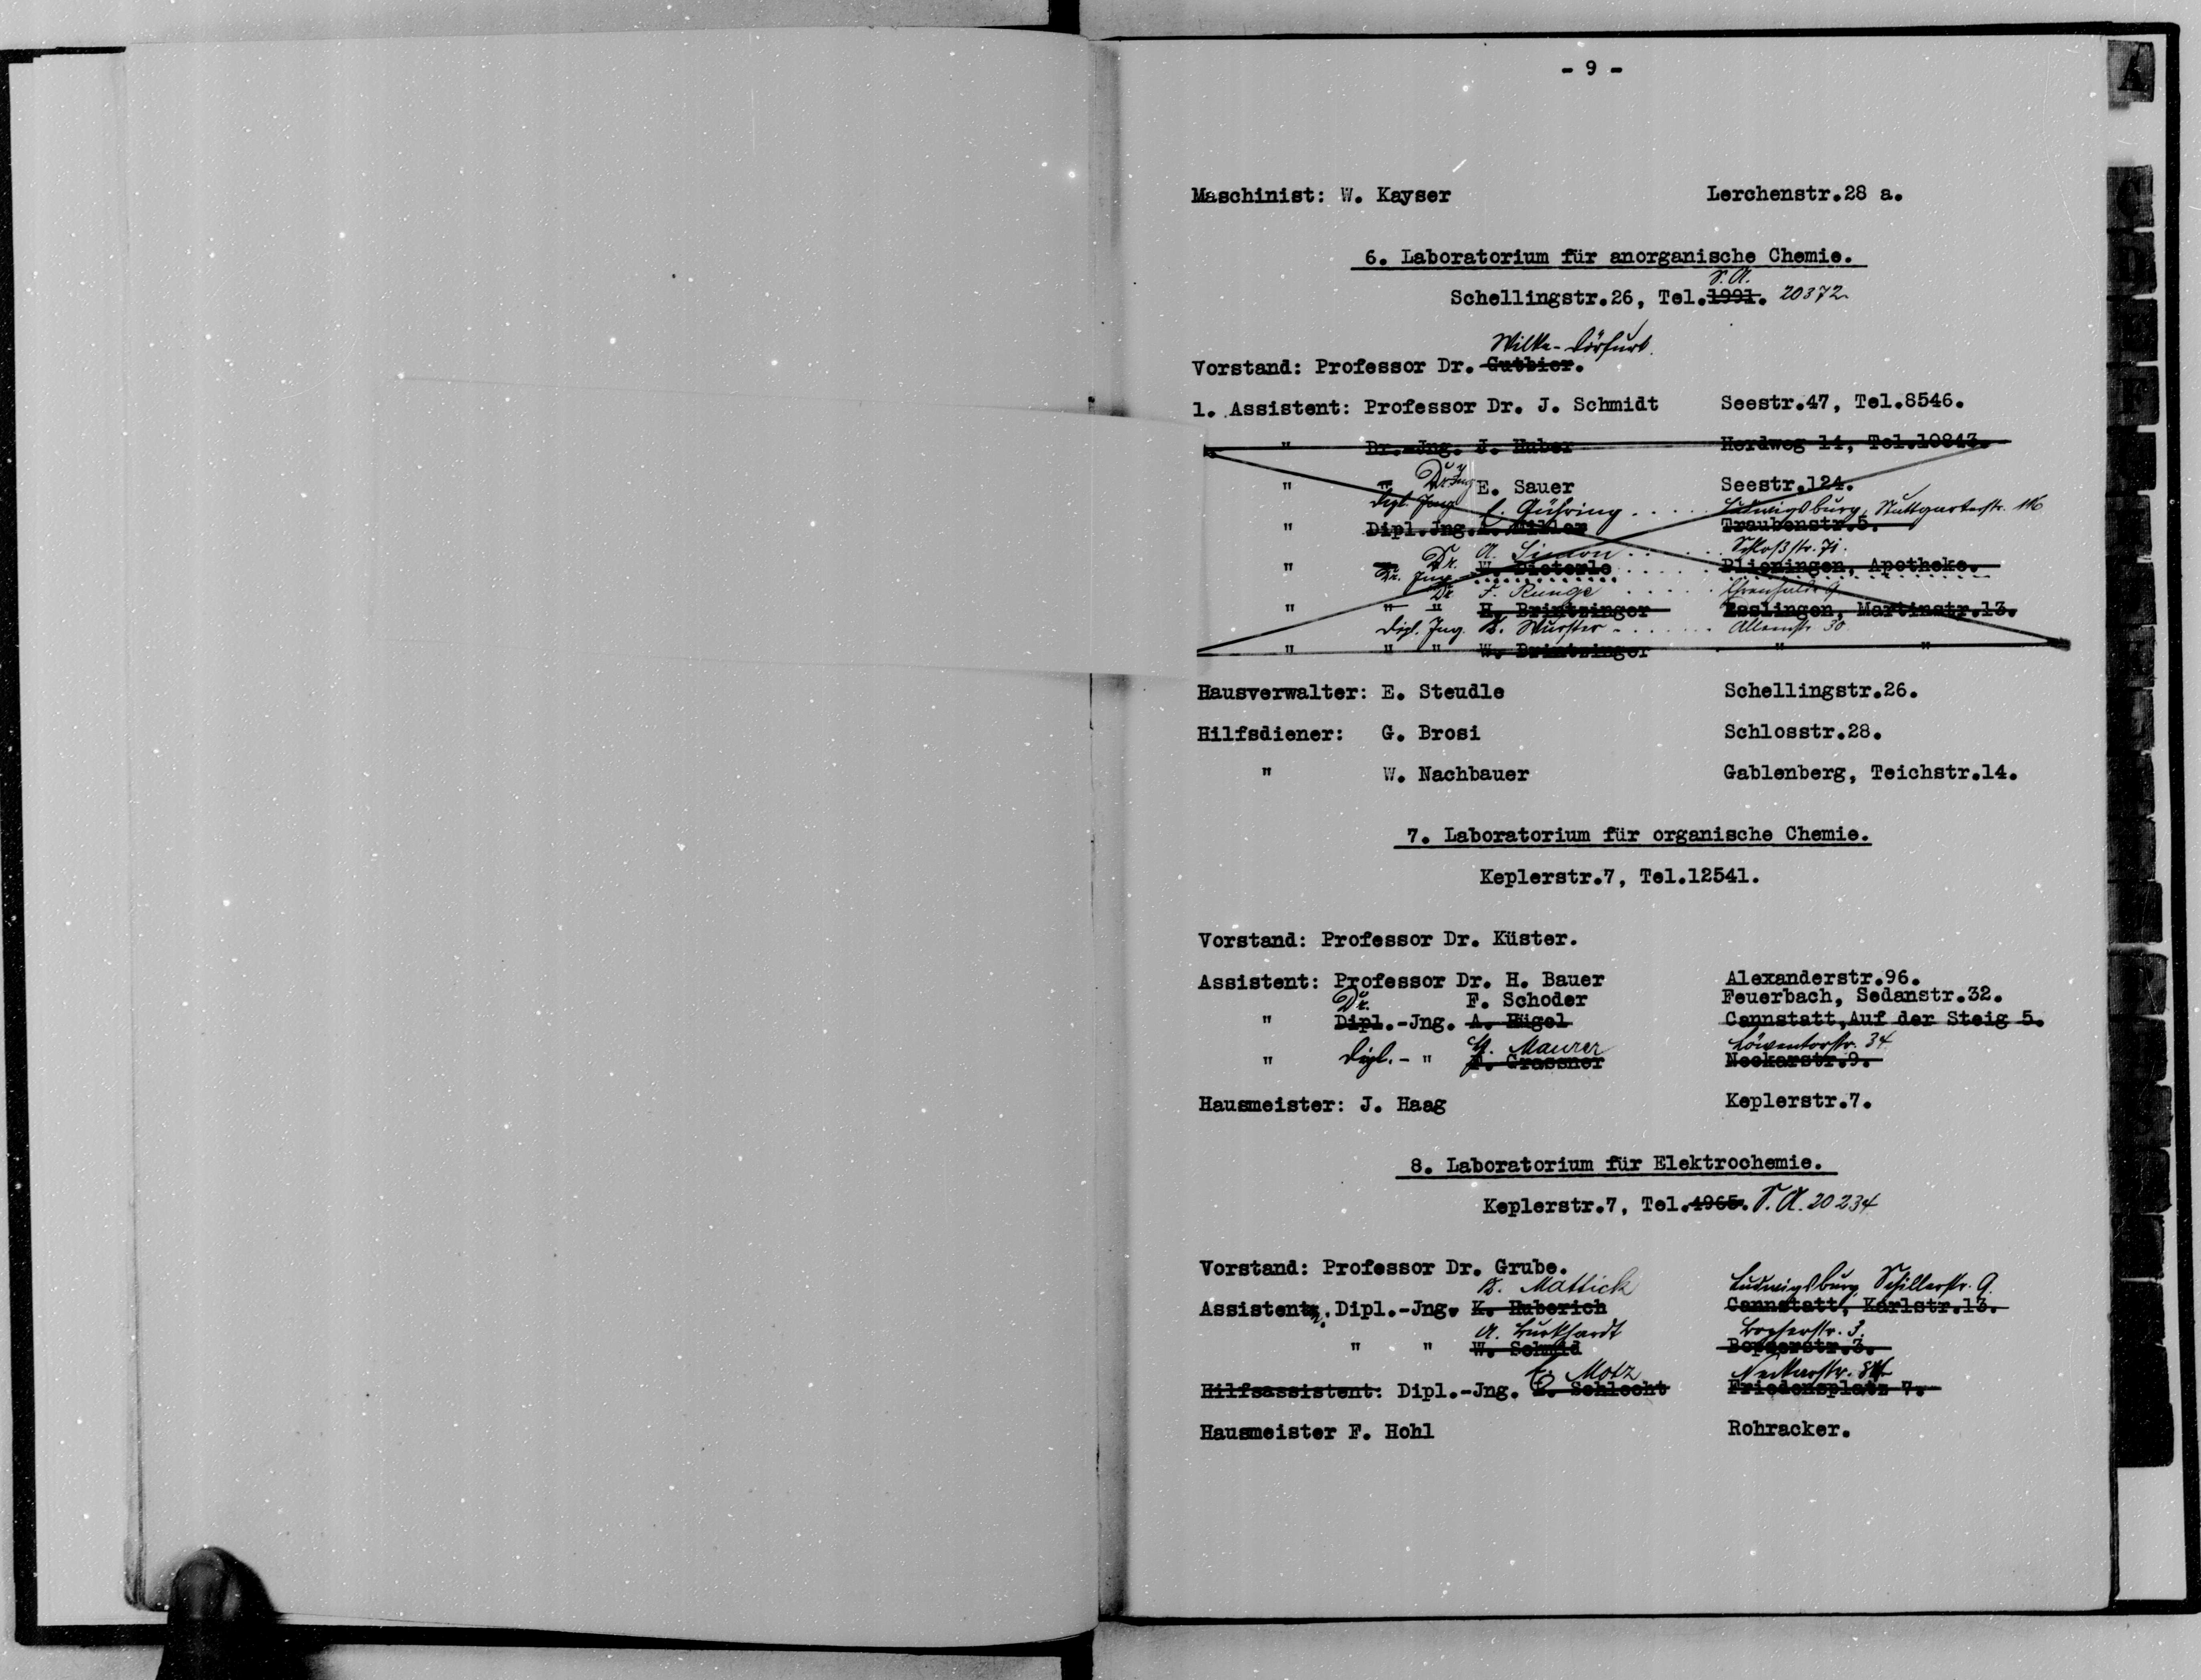 - 9 -
Maschinist: W. Kayser Lerchenstr.28 a.
6. Laboratorium für anorganische Chemie.
S.A.
Schellingstr.26, Tel.1991. 20372
Wilke-Dörfurt.
Vorstand: Professor Dr. Gutbier.
1. Assistent: Professor Dr. J. Schmidt Seestr.47, Tel.8546.
" Dr.-Jng. J. Huber Herdweg 14, Tel.10843.
" " Dr. Jng E. Sauer Seestr.124.
Dipl. Jng Gühring . . . . Ludwigsburg, Stuttgarterstr.
" Dipl.Jng. Miller Traubenstr.5.
Dr. A. Simon . . . . . . Schloßstr. 71.
" Dr. Jng. W. Dieterle . . . . . Plieningen, Apotheke.
Dr F. Runge . . . . .
" " " H. Brintzinger Esslingen, Martinstr.13.
Dipl. Jng. K. Wurster . . . . . . . Alleenstr 30
" " " W. Brintzinger " "
Hausverwalter: E. Steudle Schellingstr.26.
Hilfsdiener: G. Brosi Schlosstr.28.
" W. Nachbauer Gablenberg, Teichstr.14.
7. Laboratorium für organische Chemie.
Keplerstr.7, Tel.12541.
Vorstand: Professor Dr. Küster.
Assistent: Professor Dr. H. Bauer Alexanderstr.96.
Dr. F. Schoder Feuerbach, Sedanstr.32.
" Dipl.-Jng. A. Hügel Cannstatt,Auf der Steig 5.
Maurer Löwentorstr. 34
" Dipl. - " F. Grassner Neckarstr.9.
Hausmeister: J. Haag Keplerstr.7.
8. Laboratorium für Elektrochemie.
Keplerstr.7, Tel.4965. S.A. 20234
Vorstand: Professor Dr. Grube.
K. Mattick Ludwigsburg, Schillerstr. 9.
Assistent Dipl.-Jng. K. Huberich Cannstatt, Karlstr.13.
A. Burkhardt Bopserstr. 3.
" " W. Schmid Bopserstr.3.
Motz Neckarstr.
Hilfsassistent: Dipl.-Jng. E. Schlecht Friedensplatz 7.
Hausmeister F. Hohl Rohracker.
A
C
D
E
F